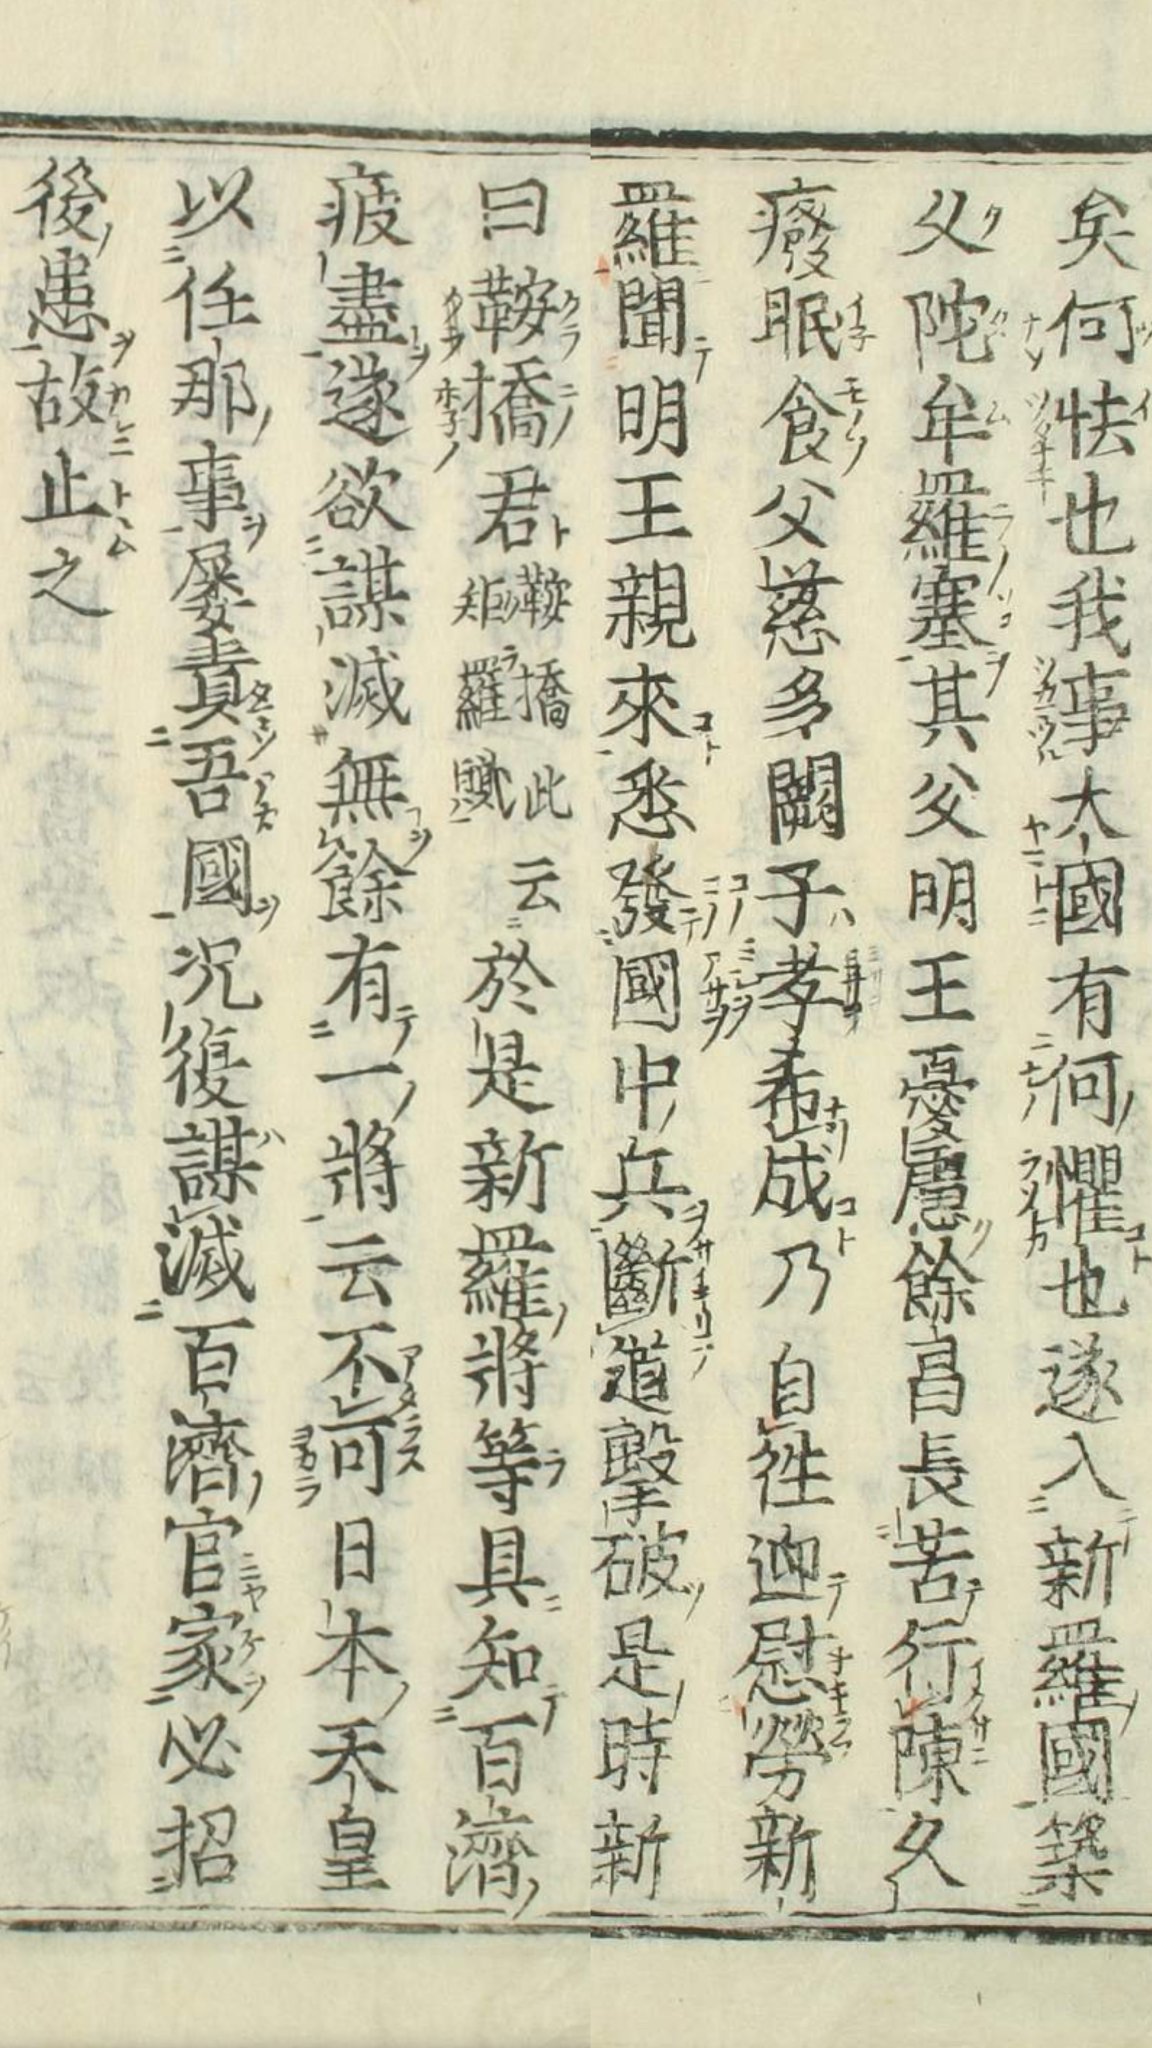 矣何怯也我事大國有何懼也遂入新羅國築
父陀牟羅塞其父明王憂慮餘昌長苦行陳久
癈眠食父慈多闕子孝希成乃自往迎慰勞新
羅聞明王親來悉發國中兵斷道擊破是時新
曰鞍橋君鞍橋此云矩羅賦於是新羅將等具知百濟
疲盡遂欲謀滅無餘有一將云不可日本天皇
以任那事屡責吾國况復謀滅百濟官家必招
後患故止之